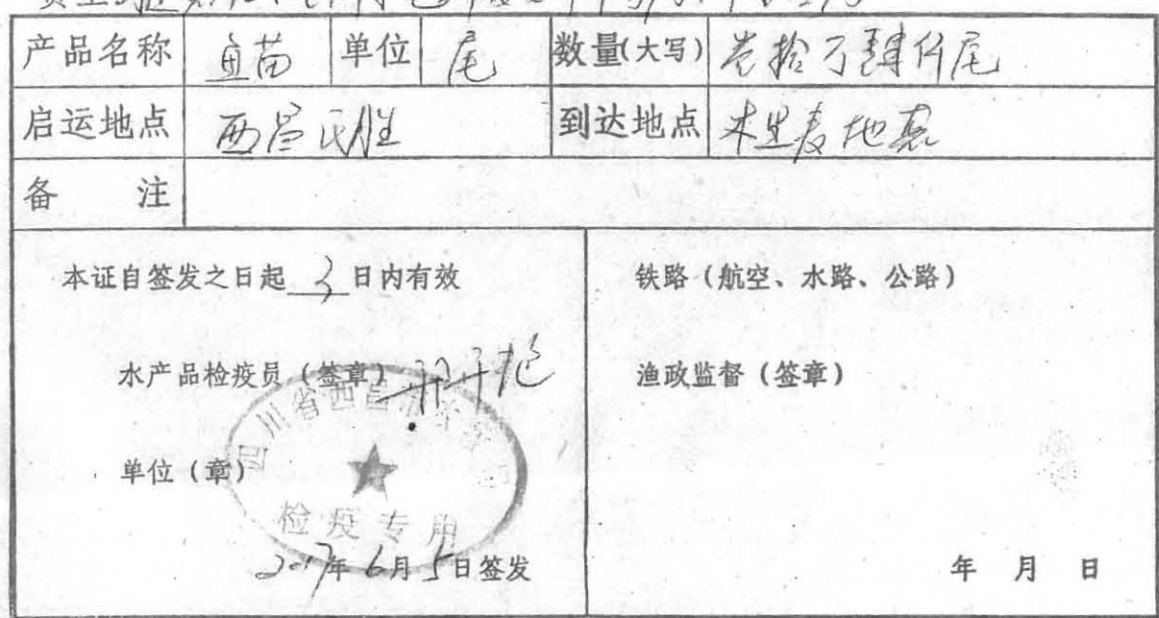 产品名称 鱼苗 单位 尾 数量(大写) 叁拾万肆仟尾
启运地点 西昌民胜 到达地点 木里麦地
备 注
本证自签发之日起 3 日内有效
水产品检疫员(签章)
单位(章)
四川省西昌
检疫专用
2017年6月5日签发
铁路(航空、水路、公路)
渔政监督(签章)
年 月 日